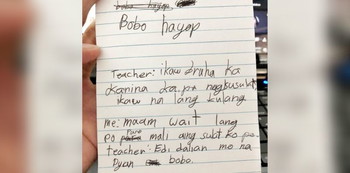 bobo hayop
Bobo hayop
Teacher: ikaw bruha ka
Kanina ka pa
ikaw na lang kulang
me: maam wait lang
po Para mali ang subt ko po.
teacher: Edi dalian mo na
Dyan bobo.